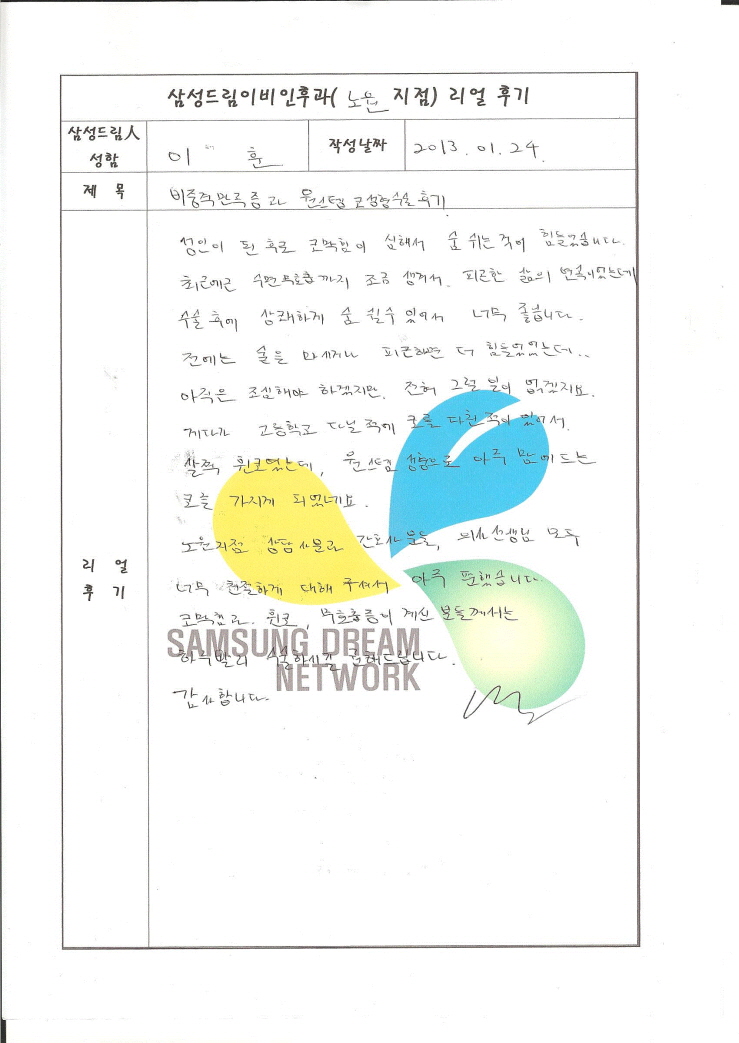 삼성드림이비인후과( 노원 지점) 리얼 후기
삼성드림人
성함
이 훈
작성날짜
2013. 01. 24.
제 목
비중격만곡증과 원스텝 코성형수술 후기
리 얼
후 기
성인이 된 후로 코막힘이 심해서 숨 쉬는 것이 힘들었습니다.
최근에는 수면무호흡까지 조금 생겨서. 피곤한 삶의 연속이었는데
수술 후에 상쾌하게 숨 쉴수 있어서 너무 좋습니다.
전에는 술을 마시거나 피곤하면 더 힘들었었는데..
아직은 조심해야 하겠지만. 전혀 그럴 일이 없겠지요.
게다가 고등학교 다닐 적에 코를 다친 적이 있어서.
살짝 휜코였는데, 원스텝 성형으로 아주 맘에 드는
코를 가지게 되었네요.
노원지점 상담사분과 간호사 분들, 의사선생님 모두
너무 친절하게 대해 주셔서 아주 편했습니다.
코막힘과. 휜코, 무호흡증이 계신 분들께서는
하루빨리 수술하시길 권해드립니다.
감사합니다.
SAMSUNG DREAM
NETWORK